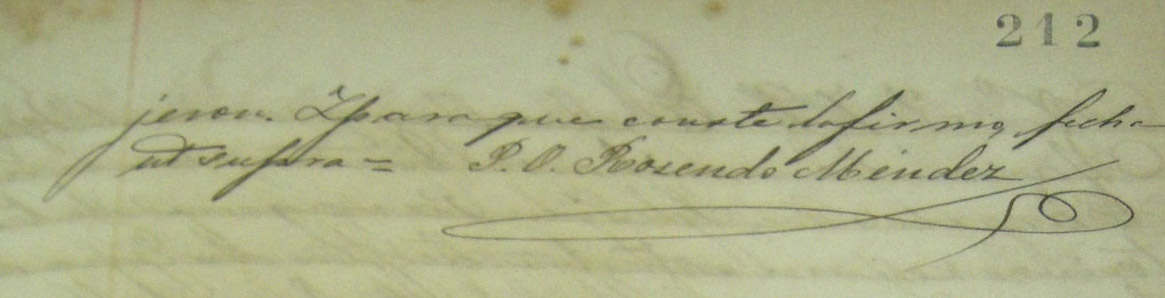 212
jeron. Y para que conste lo firmo, fecha
ut supra = P. O. Rosendo Méndez